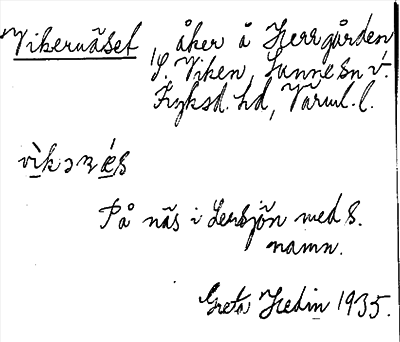 Vikernäset, åker å Herrgården
f. Viken, Sunne sn v.
Fryksd. hd, Värml. l.
vìkəɳǽs
På näs i Lersjön med s.
namn.
Greta Hedin 1935.